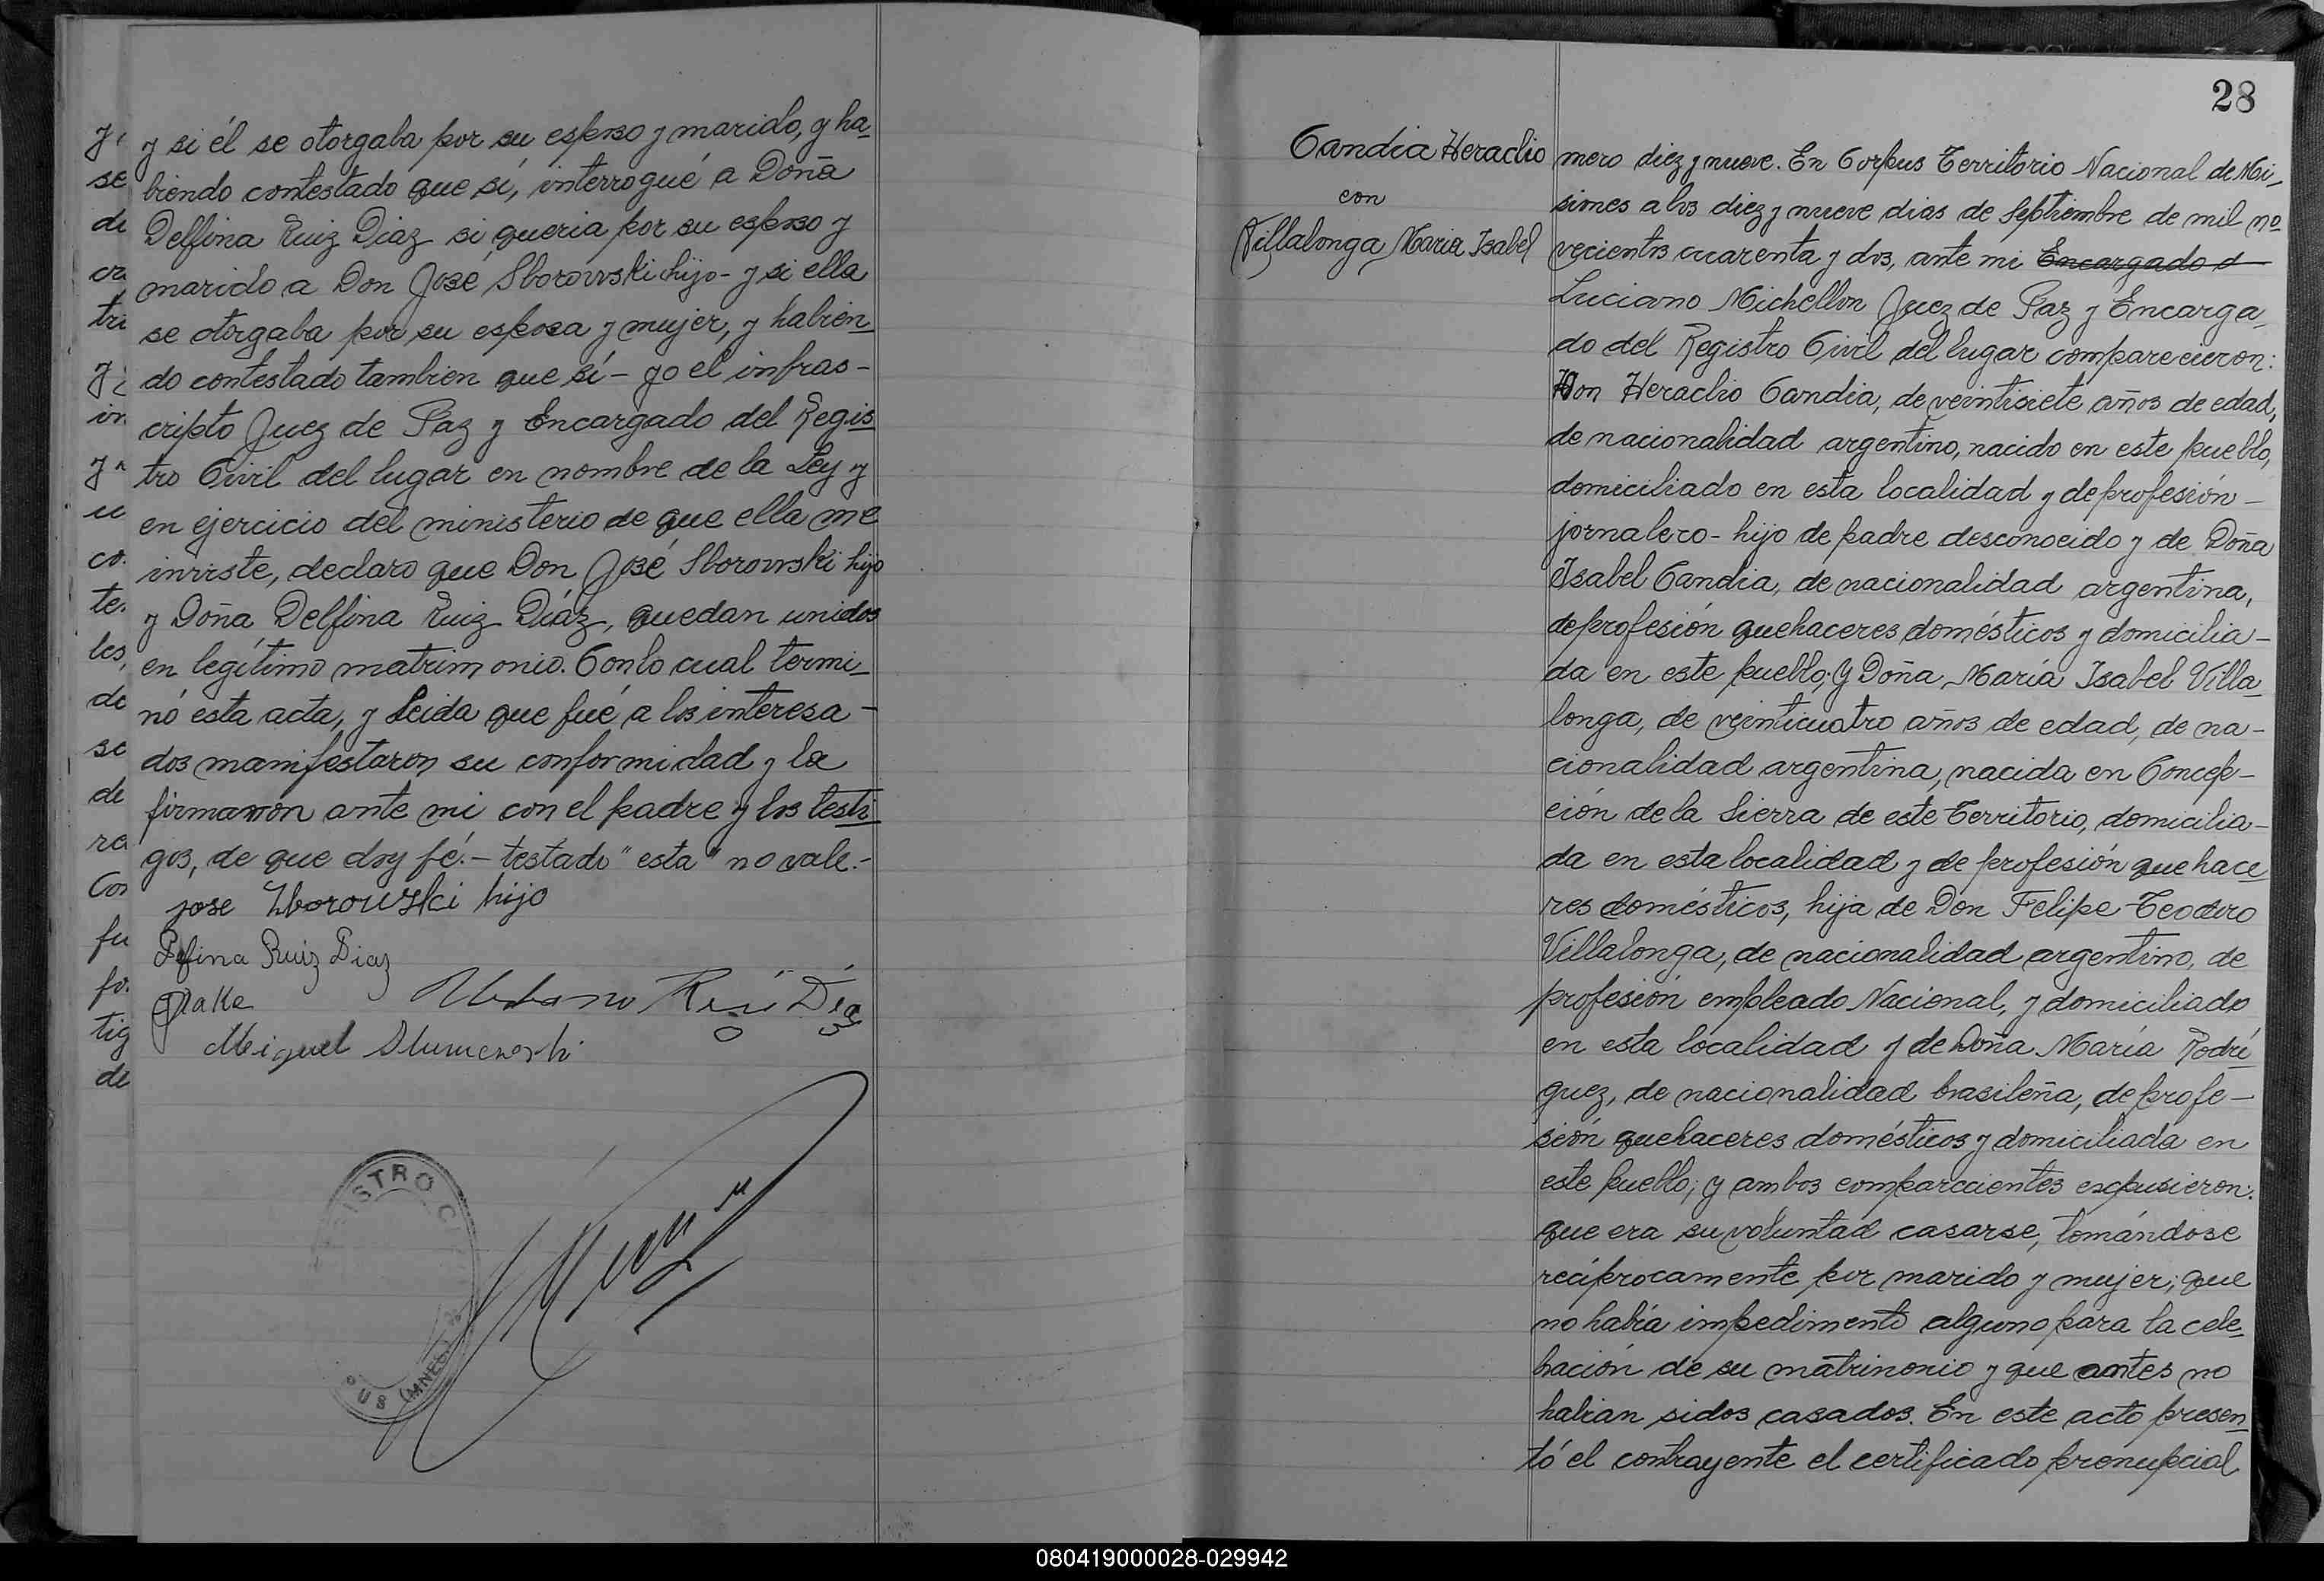 y si él se otorgaba por su esposo y marido, y ha
biendo contestado que sí, interrogué a Doña
Delfina Ruiz Diaz si queria por su esposo y
marido a Don José Sborowski hijo - y si ella
se otorgaba por su esposa y mujer, y habien
do contestado tambien que sí - yo el infras-
cripto Juez de Paz y Encargado del Regis
tro Civil del lugar en nombre de la Ley y
en ejercicio del ministerio de que ella me
inviste, declaro que Don José Sborowski hijo
y Doña Delfina Ruiz Díaz, quedan unidos
en legítimo matrimonio. Con lo cual termi-
nó esta acta, y Leida que fué a los interesa-
dos manifestaron su conformidad y la
firmaron ante mi con el padre y los testi
gos, de que doy fé. - testado "esta" no vale.-
jose Zborowski hijo
Ruiz Diaz
Miguel
28
Candia Heraclio
con
Villalonga Maria Isabel
mero diez y nueve. En Corpus Territorio Nacional de Mi-
siones a los diez y nueve dias de Septiembre de mil no
vecientos cuarenta y dos, ante mi Encargado d
Luciano Michellon Juez de Paz y Encarga
do del Registro Civil del lugar comparecieron:
Don Heraclio Candia, de veintisiete años de edad,
de nacionalidad argentino, nacido en este pueblo,
domiciliado en esta localidad y de profesión -
jornalero - hijo de padre desconocido y de Doña
Isabel Candia, de nacionalidad argentina,
de profesión quehaceres domésticos y domicilia-
da en este pueblo; Y Doña María Isabel Villa
longa, de veinticuatro años de edad, de na-
cionalidad argentina, nacida en Concep-
ción de la Sierra de este Territorio, domicilia-
da en esta localidad y de profesión que hace
res domésticos, hija de Don Felipe Teodoro
Villalonga, de nacionalidad argentino, de
profesión empleado Nacional, y domiciliado
en esta localidad y de Doña María Rodrí
guez, de nacionalidad brasileña, de profe-
sión quehaceres domésticos y domiciliada en
este pueblo; y ambos comparecientes expusieron:
que era su voluntad casarse, tomándose
recíprocamente por marido y mujer; que
no había impedimento alguno para la cele
bración de su matrimonio y que antes no
habian sidos casados. En este acto presen
tó el contrayente el certificado prenupcial
080419000028-029942